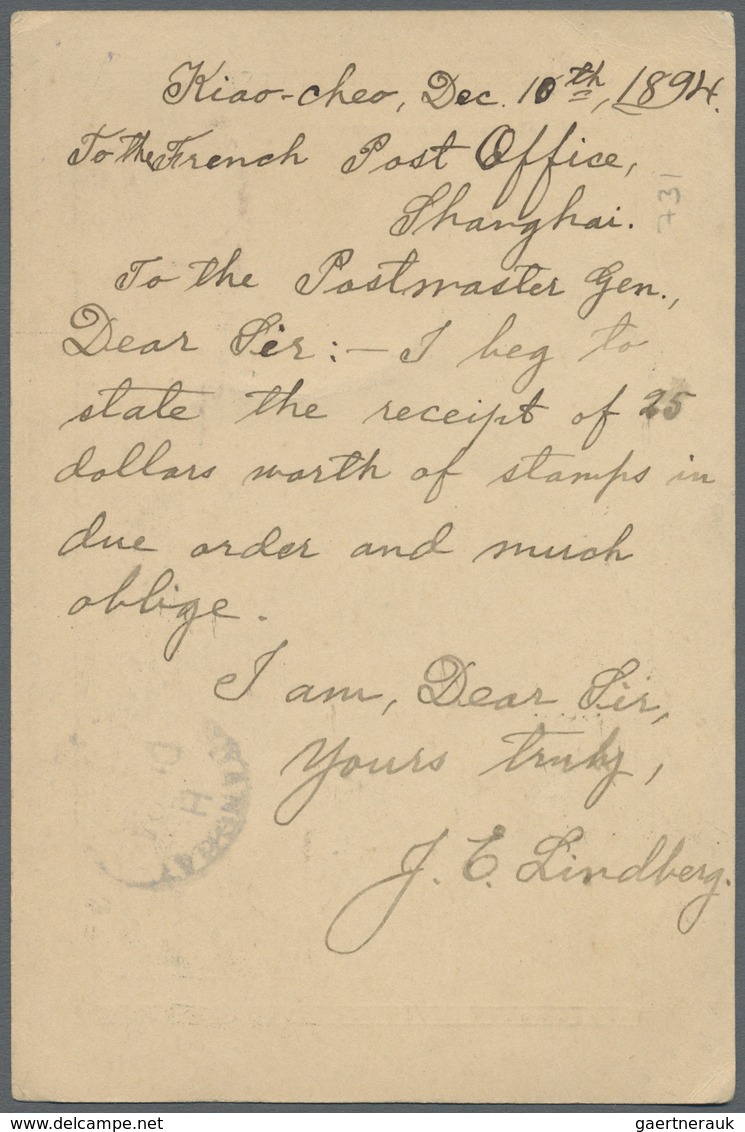 Kiao-cheo, Dec. 10th, 1894.
To the French Post Office,
Shanghai.
731
To the Postmaster Gen.,
Dear Sir:— I beg to
state the receipt of 25
dollars worth of stamps in
due order and much
oblige.
I am, Dear Sir,
Yours truly,
J. E. Lindberg.
gaertnerauk